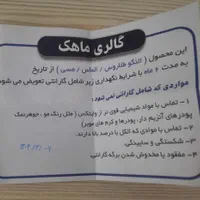 گالری ماهک
این محصول ( النگو طاروس / الماس / مسی ) از تاریخ
به مدت ۶ ماه با شرایط نگهداری زیر شامل گارانتی تعویض می شود
مواردی که شامل گارانتی نمی شود :
۱ - تماس با مواد شیمیایی قوی تر از وایتکس ( مثل رنگ مو ، جوهرنمک
پودرهای آنزیم دار ، پودرها و کرم های موبر)
۲ - تماس با موادی که الکل بالا درصد دارند.
۳ - شکستگی و ساییدگی.
۴ - مفقود یا مخدوش شدن برگه گارانتی.